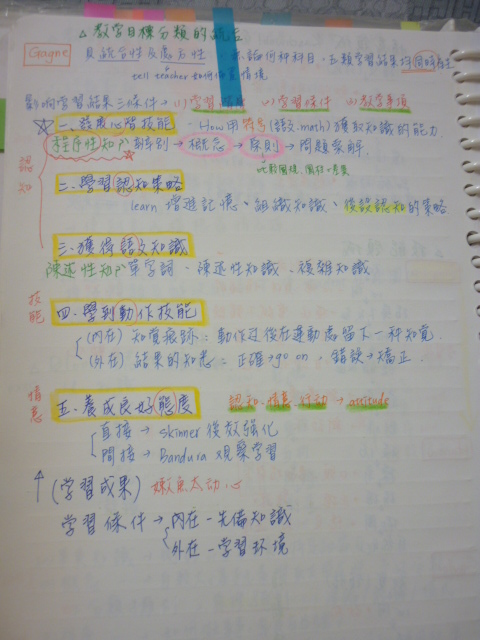 △ 教學目標分類的統立
Gagne 具統合性及處方性 - 不論何種科目,五類學習結果均同時產生
tell teacher如何佈置情境
影響學習結果三條件 → (1)學習結果 (2)學習條件 (3)教學事項
認知
一、發展心智技能 - How用符號(語文.math)獲取知識的能力.
程序性知知 辨別→概念→原則→問題索解.
二、學習認知策略
learn 增進記憶、組織知識、後設認知的策略
三、獲得語文知識
陳述性知知 單字詞、陳述性知識、複雜知識
技能
四、學到動作技能
(內在) 知覺痕跡:動作過後在運動處留下一種知覺.
(外在) 結果的知悉:正確→go on,錯誤→矯正.
情意
五、養成良好態度 認知、情意、行動 → attitude
直接 → skinner 後效強化
間接 → Bandura 觀察學習
↑(學習成果) 嫩魚太动心
學習條件→內在-先備知識
外在-學習环境